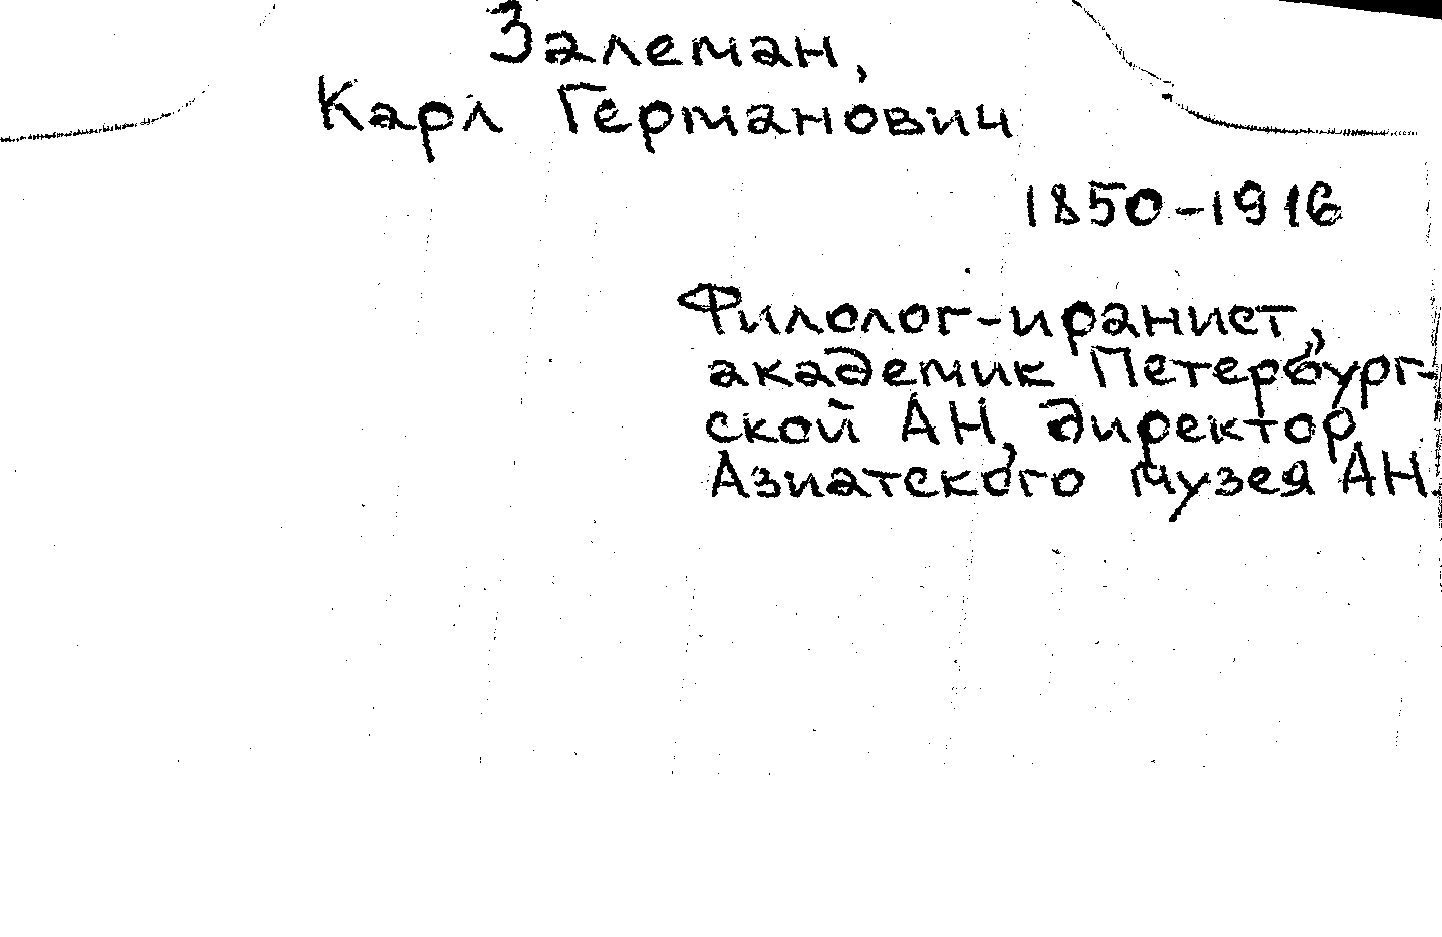 Залеман,
Карл Германович
1850-1916
Филолог-иранист,
академик Петербург-
ской АН, директор
Азиатского музея АН.